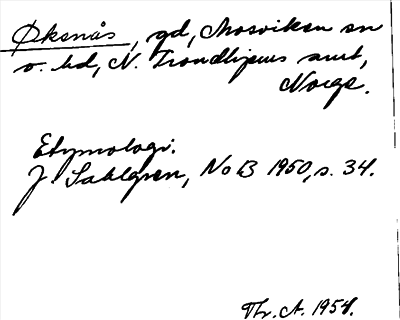 Øksnås, gd, Mosviken sn
o. hd, N. Trondhjems amt,
Norge.
Etymologi.
J Sahlgren, NoB 1950, s. 34.
Thr. A. 1954.